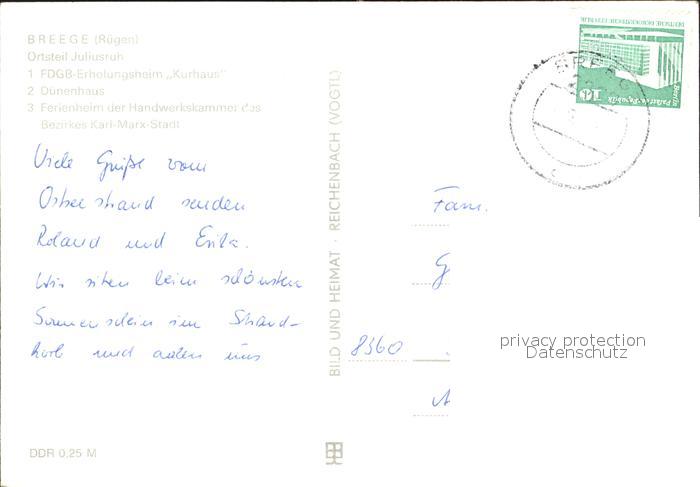 BREEGE (Rügen)
Ortsteil Juliusruh
1 FDGB-Erholungsheim „Kurhaus"
2 Dünenhaus
3 Ferienheim der Handwerkskammer des
Bezirkes Karl-Marx-Stadt
Viele Grüße vom
Ostseestrand senden
Roland und Erika.
Wir sitzen beim schönsten
Sonnenschein im Strand-
korb und aalen uns
DDR 0,25 M
BILD UND HEIMAT · REICHENBACH (VOGTL)
DEUTSCHE DEMOKRATISCHE REPUBLIK
10
Berlin Palast der Republik
BREEGE
Fam.
G
8360
A
privacy protection
Datenschutz